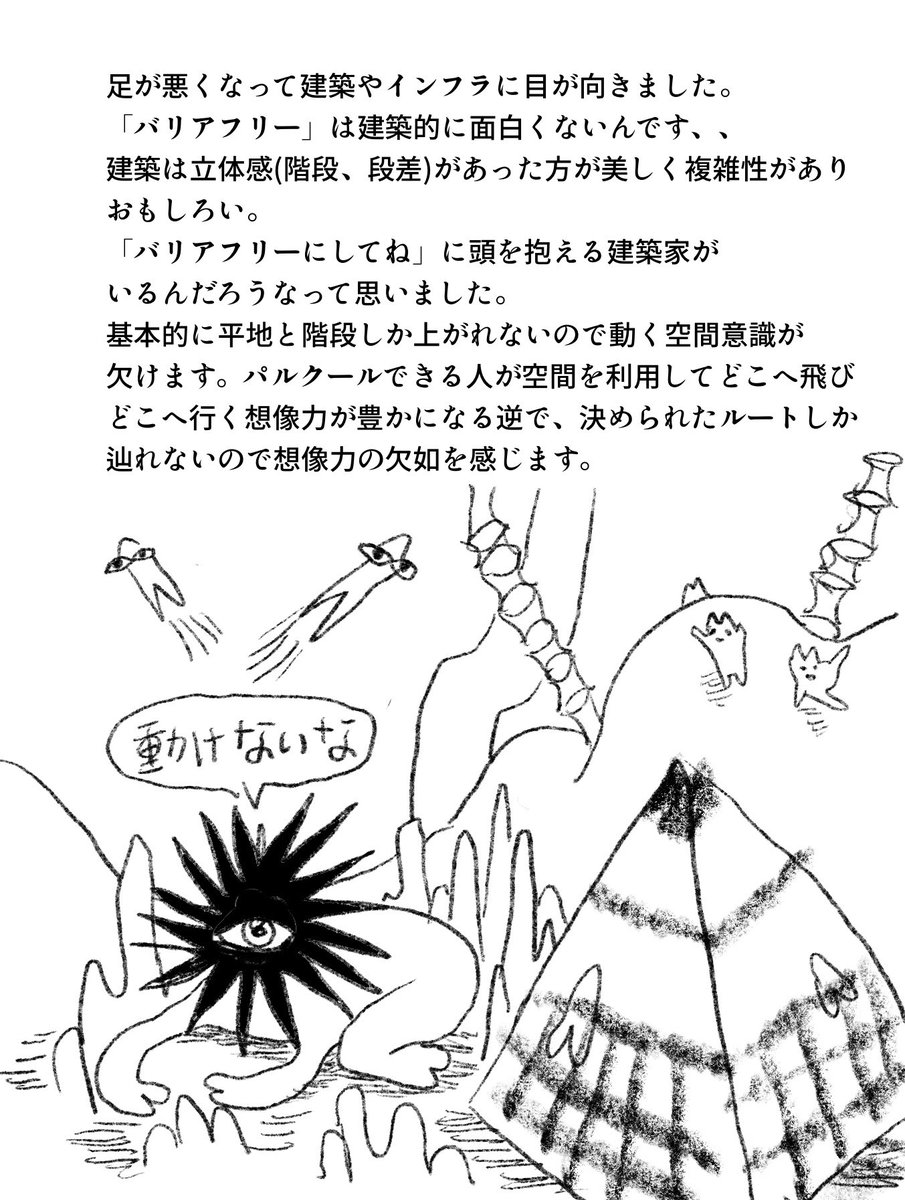 足が悪くなって建築やインフラに目が向きました。
「バリアフリー」は建築的に面白くないんです、、
建築は立体感(階段、段差)があった方が美しく複雑性があり
おもしろい。
「バリアフリーにしてね」に頭を抱える建築家が
いるんだろうなって思いました。
基本的に平地と階段しか上がれないので動く空間意識が
欠けます。パルクールできる人が空間を利用してどこへ飛び
どこへ行く想像力が豊かになる逆で、決められたルートしか
辿れないので想像力の欠如を感じます。
動けないな